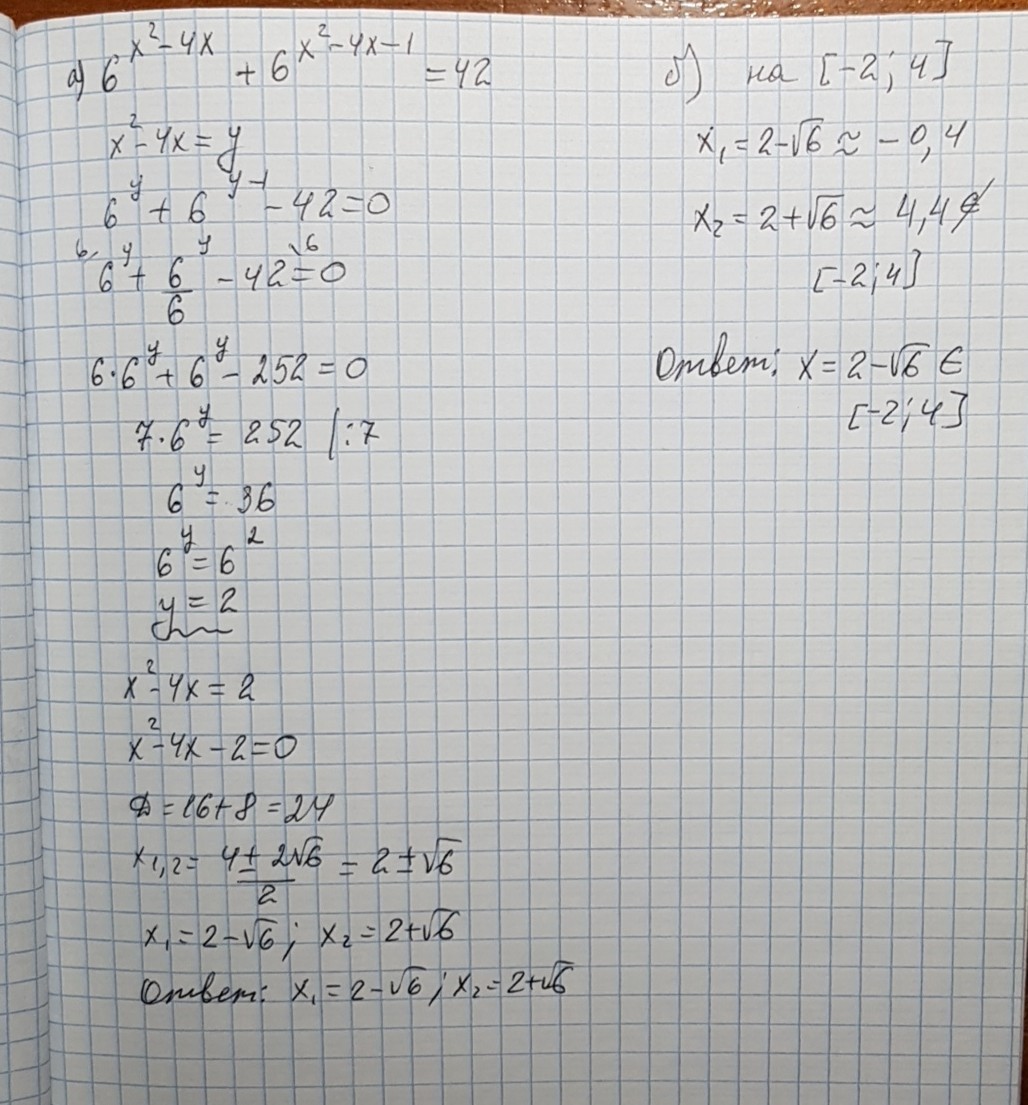 а) 6^(x²-4x) + 6^(x²-4x-1) = 42
x²-4x = y
6^y + 6^(y-1) - 42 = 0
6^y + 6^y/6 - 42 = 0
6·6^y + 6^y - 252 = 0
7·6^y = 252 |:7
6^y = 36
6^y = 6²
y = 2
x²-4x = 2
x²-4x-2=0
D = 16+8 = 24
x1,2 = (4±2√6)/2 = 2±√6
x₁ = 2-√6; x₂ = 2+√6
Ответ: x₁ = 2-√6; x₂ = 2+√6
б) на [-2; 4]
x₁ = 2-√6 ≈ -0,4
x₂ = 2+√6 ≈ 4,4 ∉
[-2; 4]
Ответ: x = 2-√6 ∈
[-2; 4]